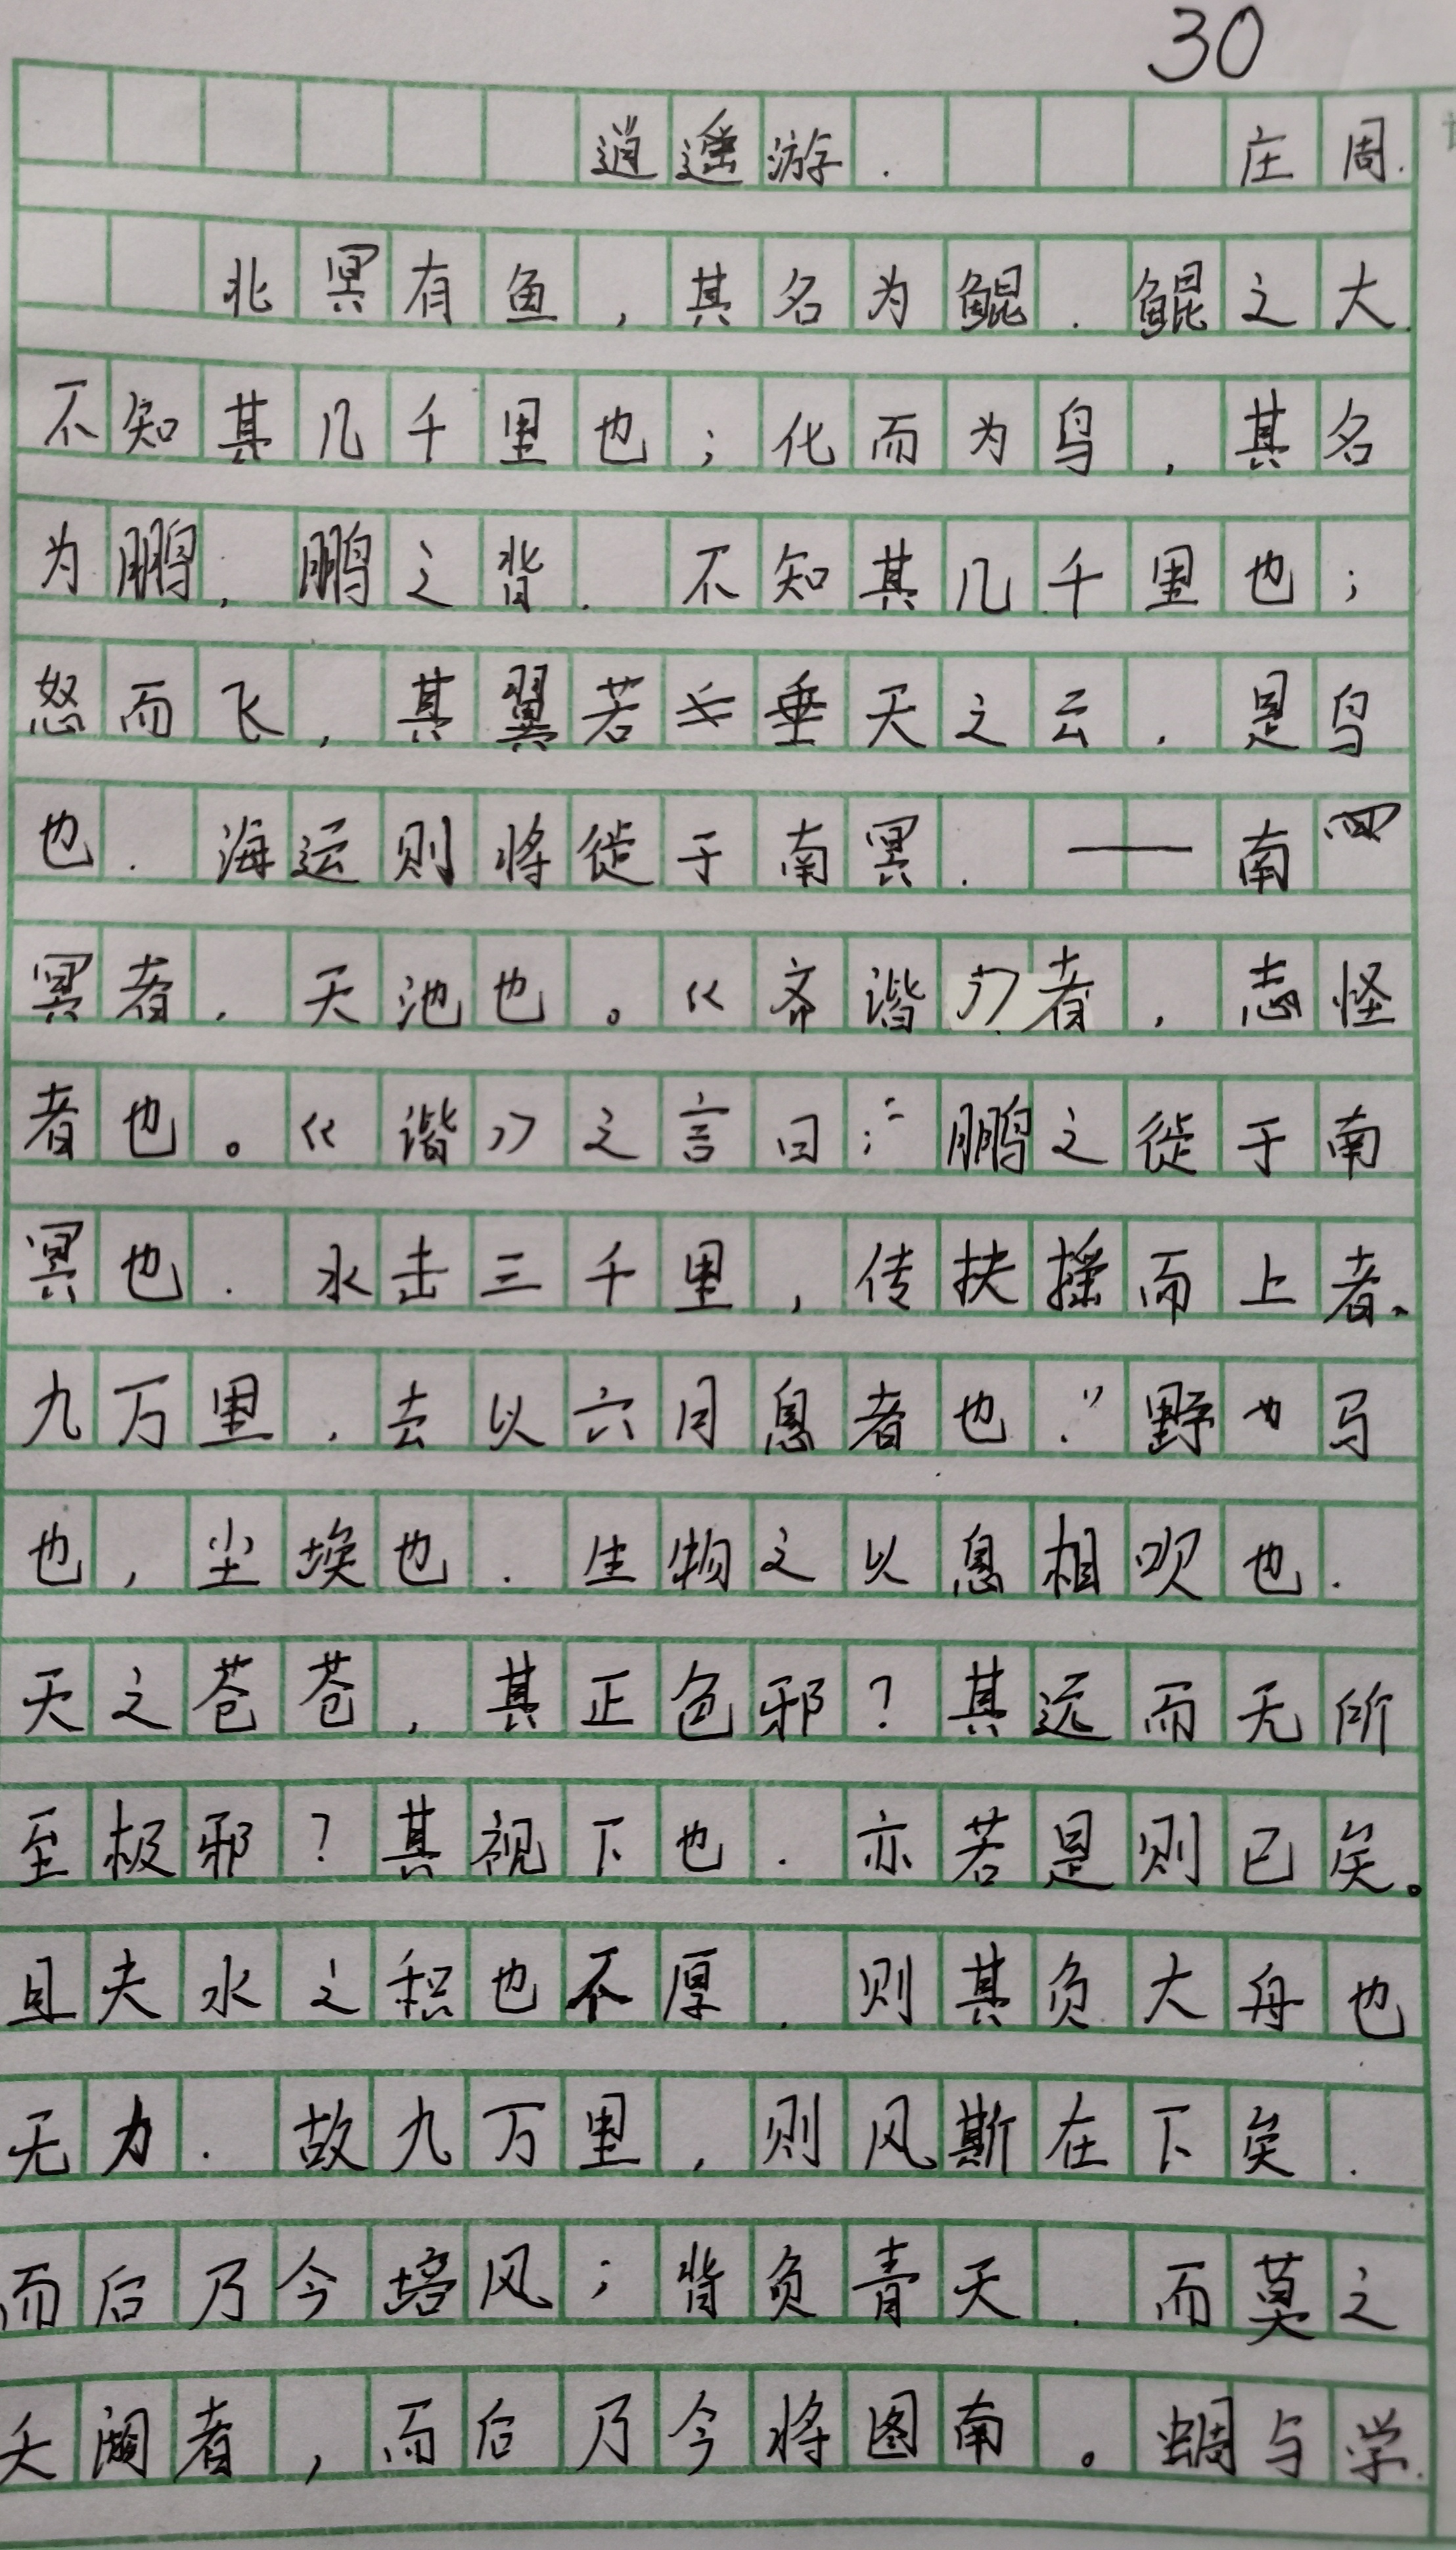 30
逍遥游. 庄周.
北冥有鱼,其名为鲲.鲲之大.
不知其几千里也;化而为鸟,其名
为鹏.鹏之背.不知其几千里也;
怒而飞,其翼若垂天之云.是鸟
也.海运则将徙于南冥.——南
冥者.天池也。《齐谐》者,志怪
者也。《谐》之言曰:“鹏之徙于南
冥也.水击三千里,传扶摇而上者、
九万里.去以六月息者也.”野马
也,尘埃也.生物之以息相吹也.
天之苍苍,其正色邪?其远而无所
至极邪?其视下也.亦若是则已矣。
且夫水之积也不厚.则其负大舟也
无力.故九万里,则风斯在下矣.
而后乃今培风;背负青天.而莫之
夭阏者,而后乃今将图南。蜩与学.